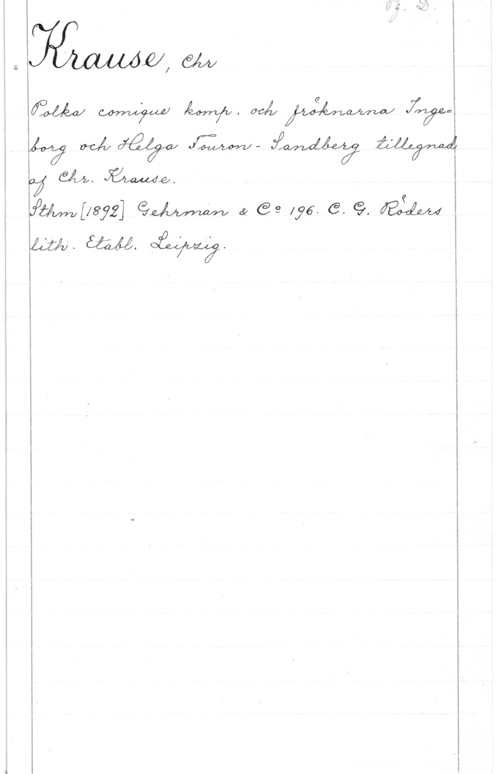 Pf. D.
Krause, Chr
Polka comique komp. och fröknarna Inge=
borg och Helga Touron-Sandberg tillegnad
af Chr. Krause.
Sthm [1892] Gehrman & Co 196. C. G. Röders
lith. Etabl. Leipzig.